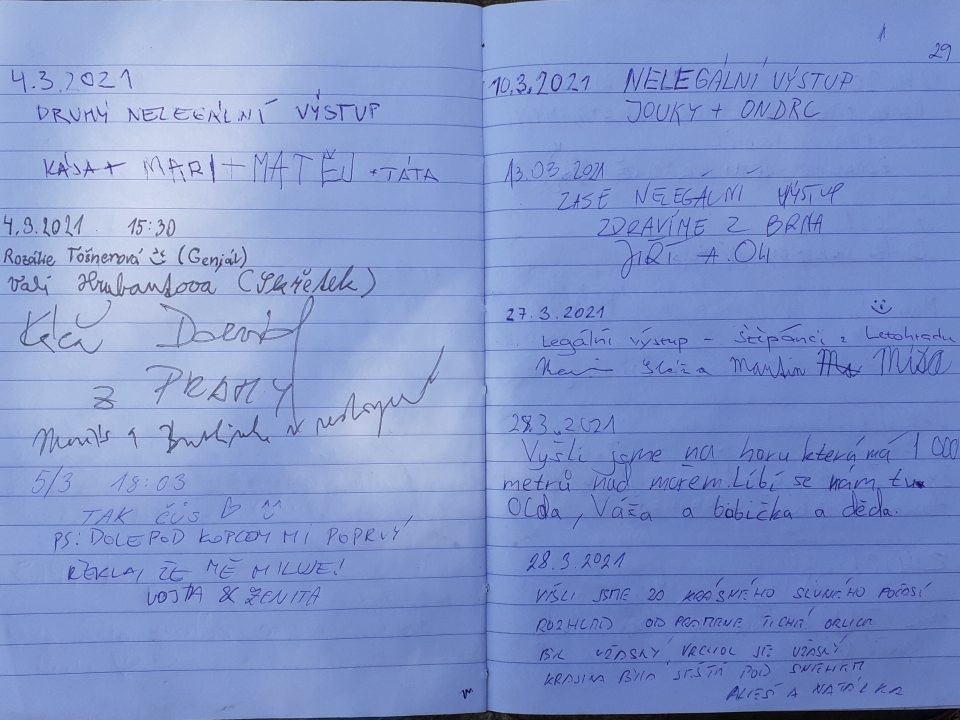 4.3.2021
DRUHÝ NELEGÁLNÍ VÝSTUP
KÁJA + MARI + MATĚJ + TÁTA
4.3.2021 15:30
Rozálie Tošnerová (Genjál)
Váli Hrubantova (Skřétek)
Káča David
Z PRAHY
5/3 18:03
TAK ČŮS
PS: DOLE POD KOPCOM MI POPRVÝ
ŘEKLA, ŽE MĚ MILUJE!
VOJTA & ŽENITA
1
29
10.3.2021 NELEGÁLNÍ VÝSTUP
JOUKY + ONDRC
13.03.2021
ZASE NELEGÁLNÍ VÝSTUP
ZDRAVÍME Z BRNA
JIŘÍ A. Oli
27.3.2021
Legální výstup - Štěpánci z Letohradu
Martin Míša
28.3.2021
Vyšli jsme na horu která má 1 000
metrů nad mořem. Líbí se nám tu
Olda, Váša a babička a děda.
28.3.2021
VIŠLI JSME ZO KRÁSNÉHO SLUNÉHO POČASÍ
ROZHLAD OD PRAMENE TICHÁ ORLICA
BIL UŽASKÝ VRCHOL JE UŽASKÝ
KRAJINA BYLA JEŠTĚ POD SNEHEM
ALIEŠ A NATÁLKA